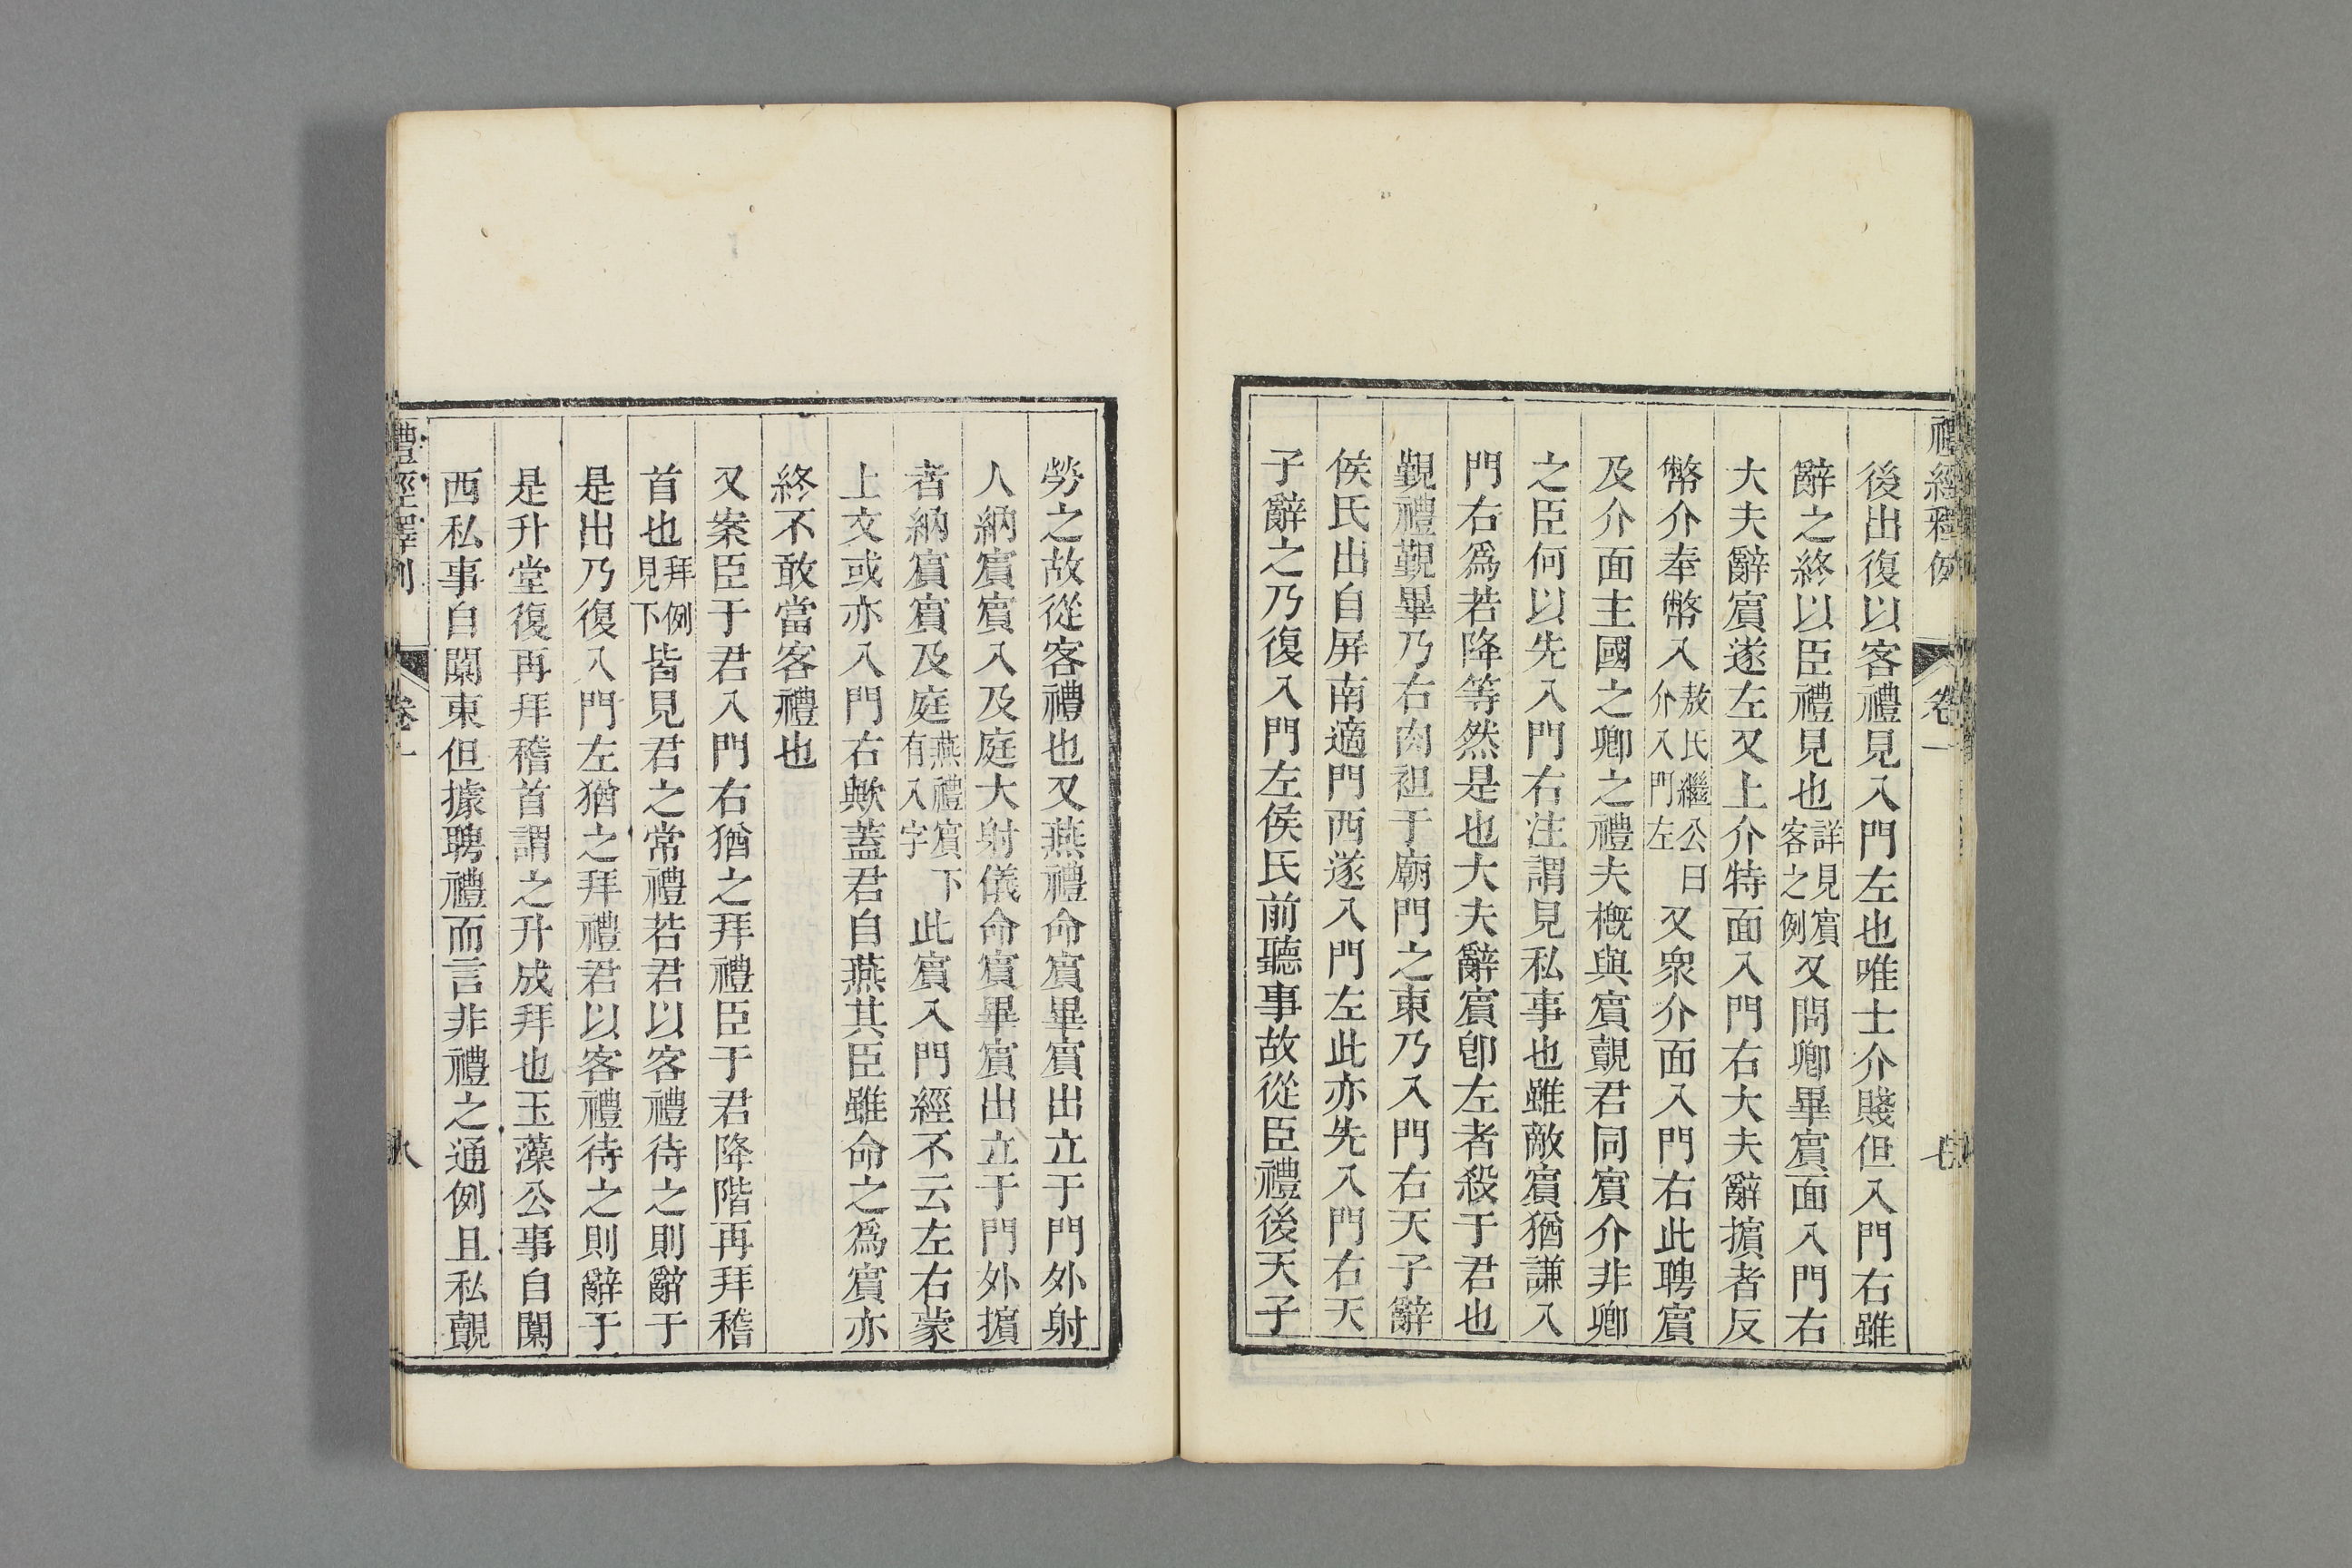 禮經釋例 卷一 七
後出復以客禮見入門左也唯士介賤但入門右雖
辭之終以臣禮見也詳見賓客之例又問卿畢賓面入門右
大夫辭賓遂左又上介特面入門右大夫辭擯者反
幣介奉幣入敖氏繼公曰介入門左又衆介面入門右此聘賓
及介面主國之卿之禮夫槪與賓覿君同賓介非卿
之臣何以先入門右注謂見私事也雖敵賓猶謙入
門右爲若降等然是也大夫辭賓卽左者殺于君也
覲禮覲畢乃右肉袒于廟門之東乃入門右天子辭
侯氏出自屏南適門西遂入門左此亦先入門右天
子辭之乃復入門左侯氏前聽事故從臣禮後天子
勞之故從客禮也又燕禮命賓畢賓出立于門外射
人納賓賓入及庭大射儀命賓畢賓出立于門外擯
者納賓賓及庭燕禮賓下有入字此賓入門經不云左右蒙
上文或亦入門右歟蓋君自燕其臣雖命之爲賓亦
終不敢當客禮也
又案臣于君入門右猶之拜禮臣于君降階再拜稽
首也拜例見下皆見君之常禮若君以客禮待之則辭于
是出乃復入門左猶之拜禮君以客禮待之則辭于
是升堂復再拜稽首謂之升成拜也玉藻公事自闑
西私事自闑東但據聘禮而言非禮之通例且私覿
禮經釋例 卷一 八